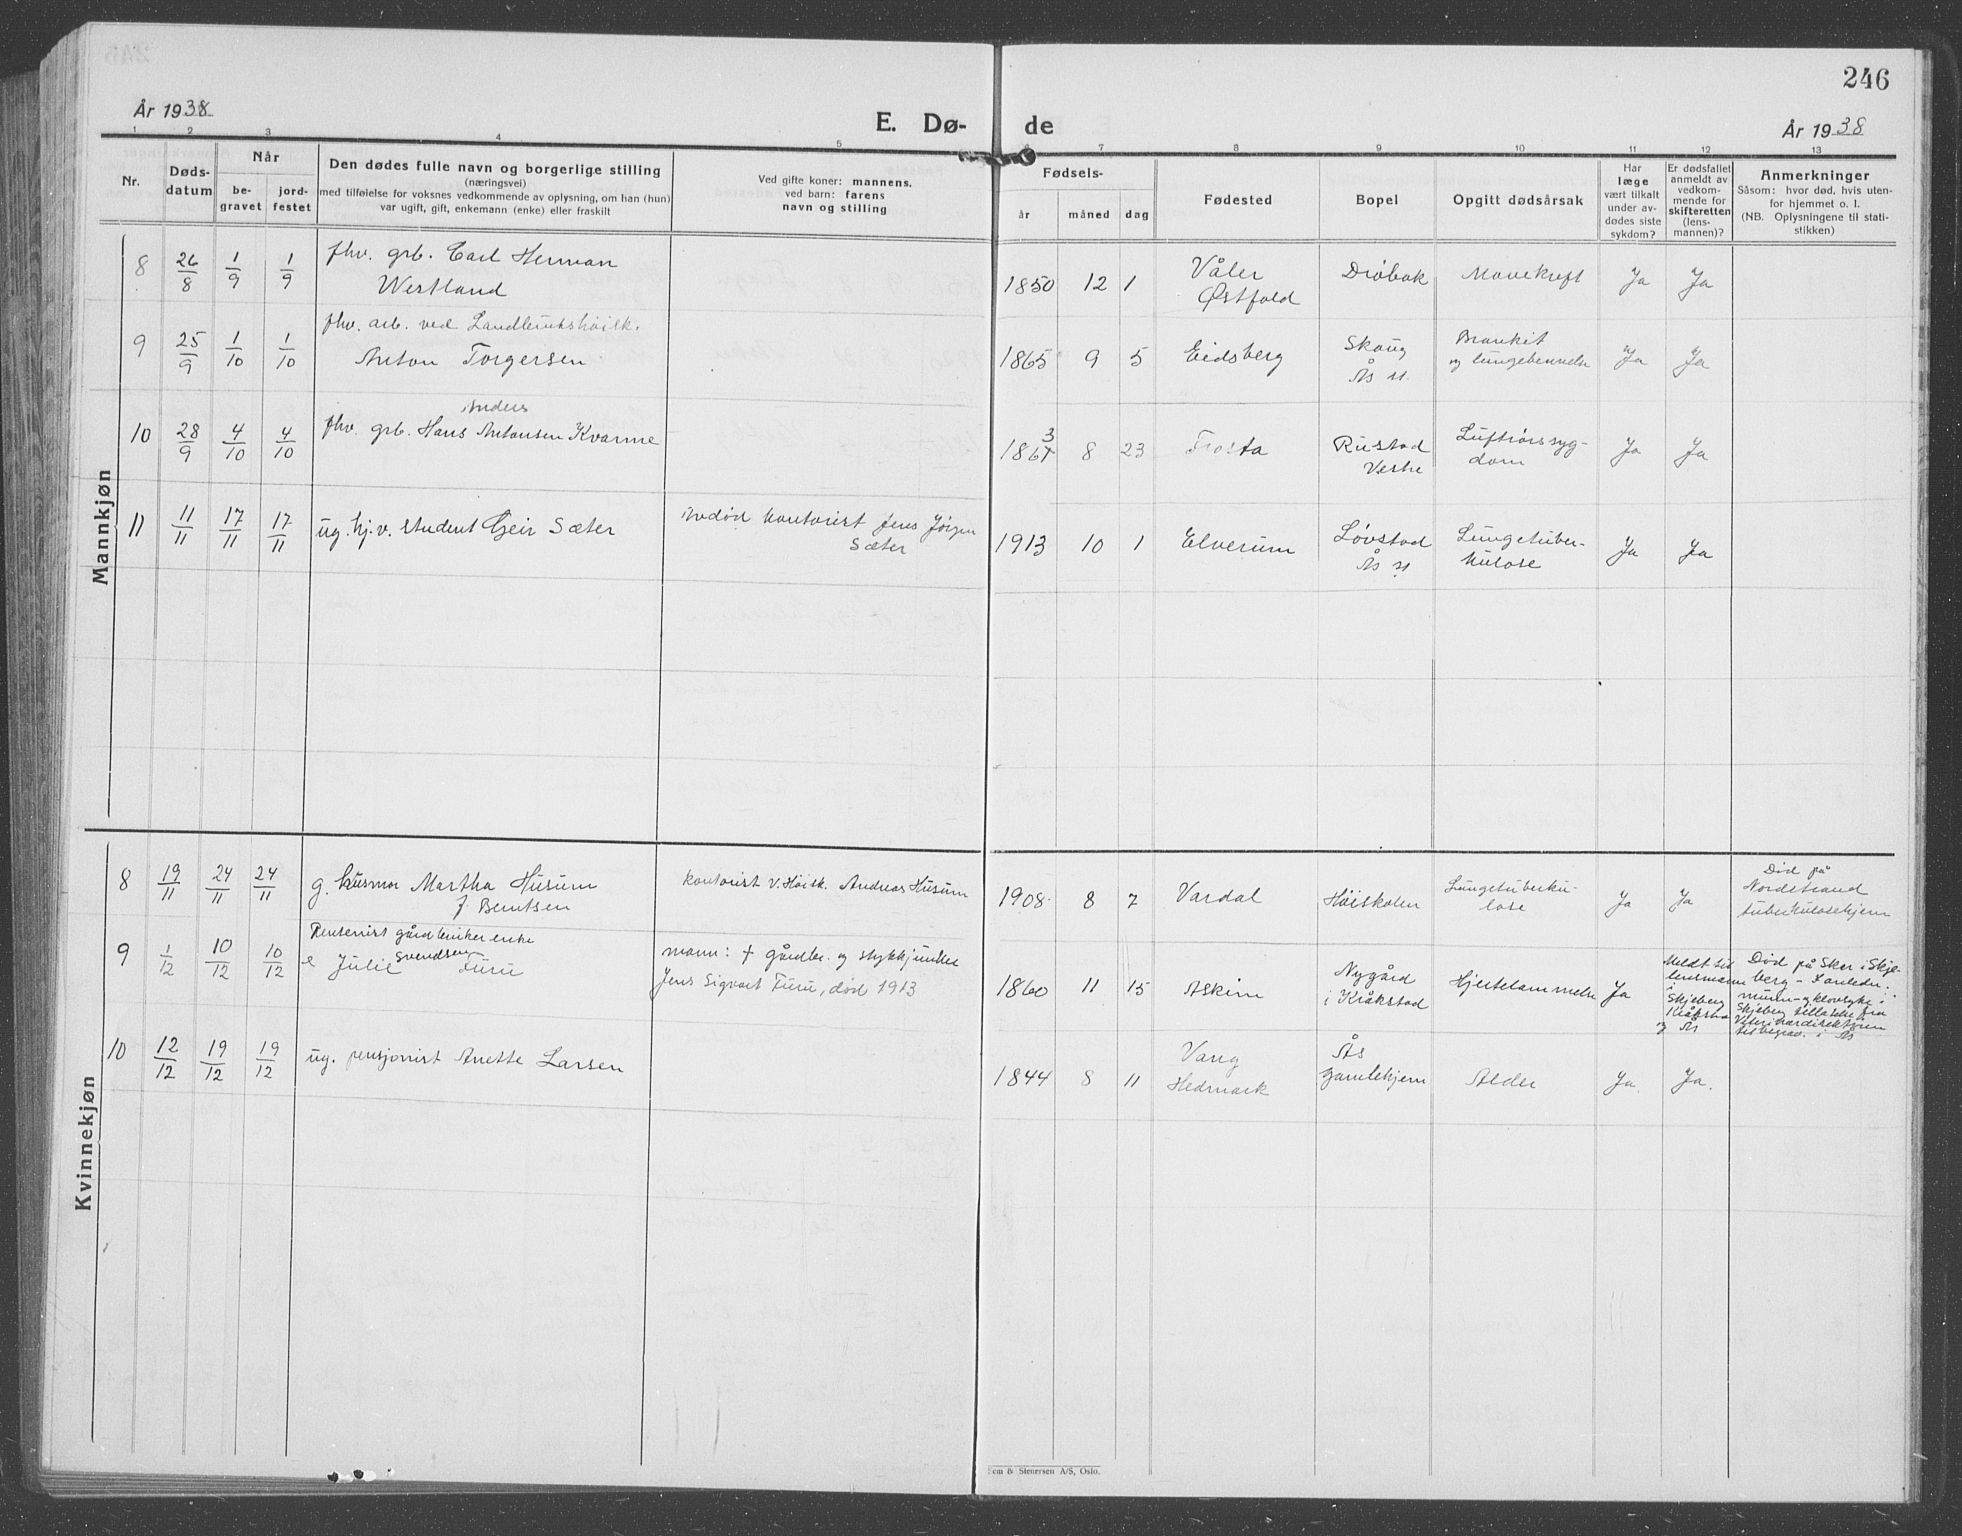 246
År 1938
E. Dø-
de
År 1938
1 2 3 4 5 6 7 8 9 10 11 12 13
Nr.
Døds-
datum
Når
be-
gravet
jord-
festet
Den dødes fulle navn og borgerlige stilling
(næringsvei)
med tilføielse for voksnes vedkommende av oplysning, om han (hun)
var ugift, gift, enkemann (enke) eller fraskilt
Ved gifte koner: mannens,
ved barn: farens
navn og stilling
Fødsels-
år måned dag
Fødested
Bopel
Opgitt dødsårsak
Har
læge
vært tilkalt
under av-
dødes siste
sykdom?
Er dødsfallet
anmeldt av
vedkom-
mende for
skifteretten
(lens-
mannen)?
Anmerkninger
Såsom: hvor død, hvis uten-
for hjemmet o. l.
(NB. Oplysningene til stati-
stikken)
Mannkjøn
8 26/8 1/9 1/9 fhv. grb. Carl Herman
Westland
1850 12 1 Våler
Østfold
Drøbak Mavekreft Ja Ja
9 25/9 1/10 1/10 fhv. arb. ved Landbrukshøisk.
Anton Torgersen
1865 9 5 Eidsberg Skaug
Ås st.
Bronkit
og lungebetennelse Ja Ja
Anders
10 28/9 4/10 4/10 fhv. grb. Hans Antonsen Kvarme
3
1861 8 23 Frosta Rustad
Vestre
Luftrørssyg-
dom
Ja Ja
11 11/11 17/11 17/11 ug. hj.v. student Geir Sæter
avdød kontorist Jens Jörgen
Sæter
1913 10 1 Elverum Løvstad
Ås st
Lungetuber-
kulose
Ja Ja
Kvinnekjøn
8 19/11 24/11 24/11 g. husmor Martha Husum
f. Berntsen
kontorist v. Høisk. Andreas Husum
1908 8 7 Vardal Høiskolen
Lungetuberku-
lose
Ja Ja
Død på
Nordstrand
tuberkulosehjem
9 1/12 10/12 10/12 Rentenist gårdbruker enke
e Julie Svendsen Furu
mann: † gårdbr. og stykkjunker
Jens Sigvart Furu, død 1913
1860 11 15 Askim Nygård
i Kråkstad
Hjertelammelse Ja
Meldt til
lensmann
i
Skjeberg
Kråkstad
og Ås
Død på Sker i Skje-
berg -
munn- og klovsyke i
Skjeberg tillatelse fra
Veterinærdirektøren
til begrav. i Ås
10 12/12 19/12 19/12 ug. pensjonist Anette Larsen
1844 8 11 Vang
Hedmark
Ås
gamlehjem
Alder Ja. Ja.
Sem & Stenersen A/S, Oslo.